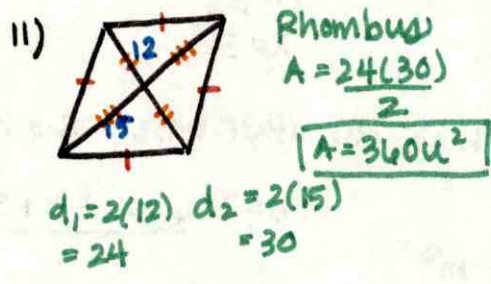 11)
12
15
Rhombus
A = 24(30)
2
A = 360u²
d₁ = 2(12) d₂ = 2(15)
= 24 = 30